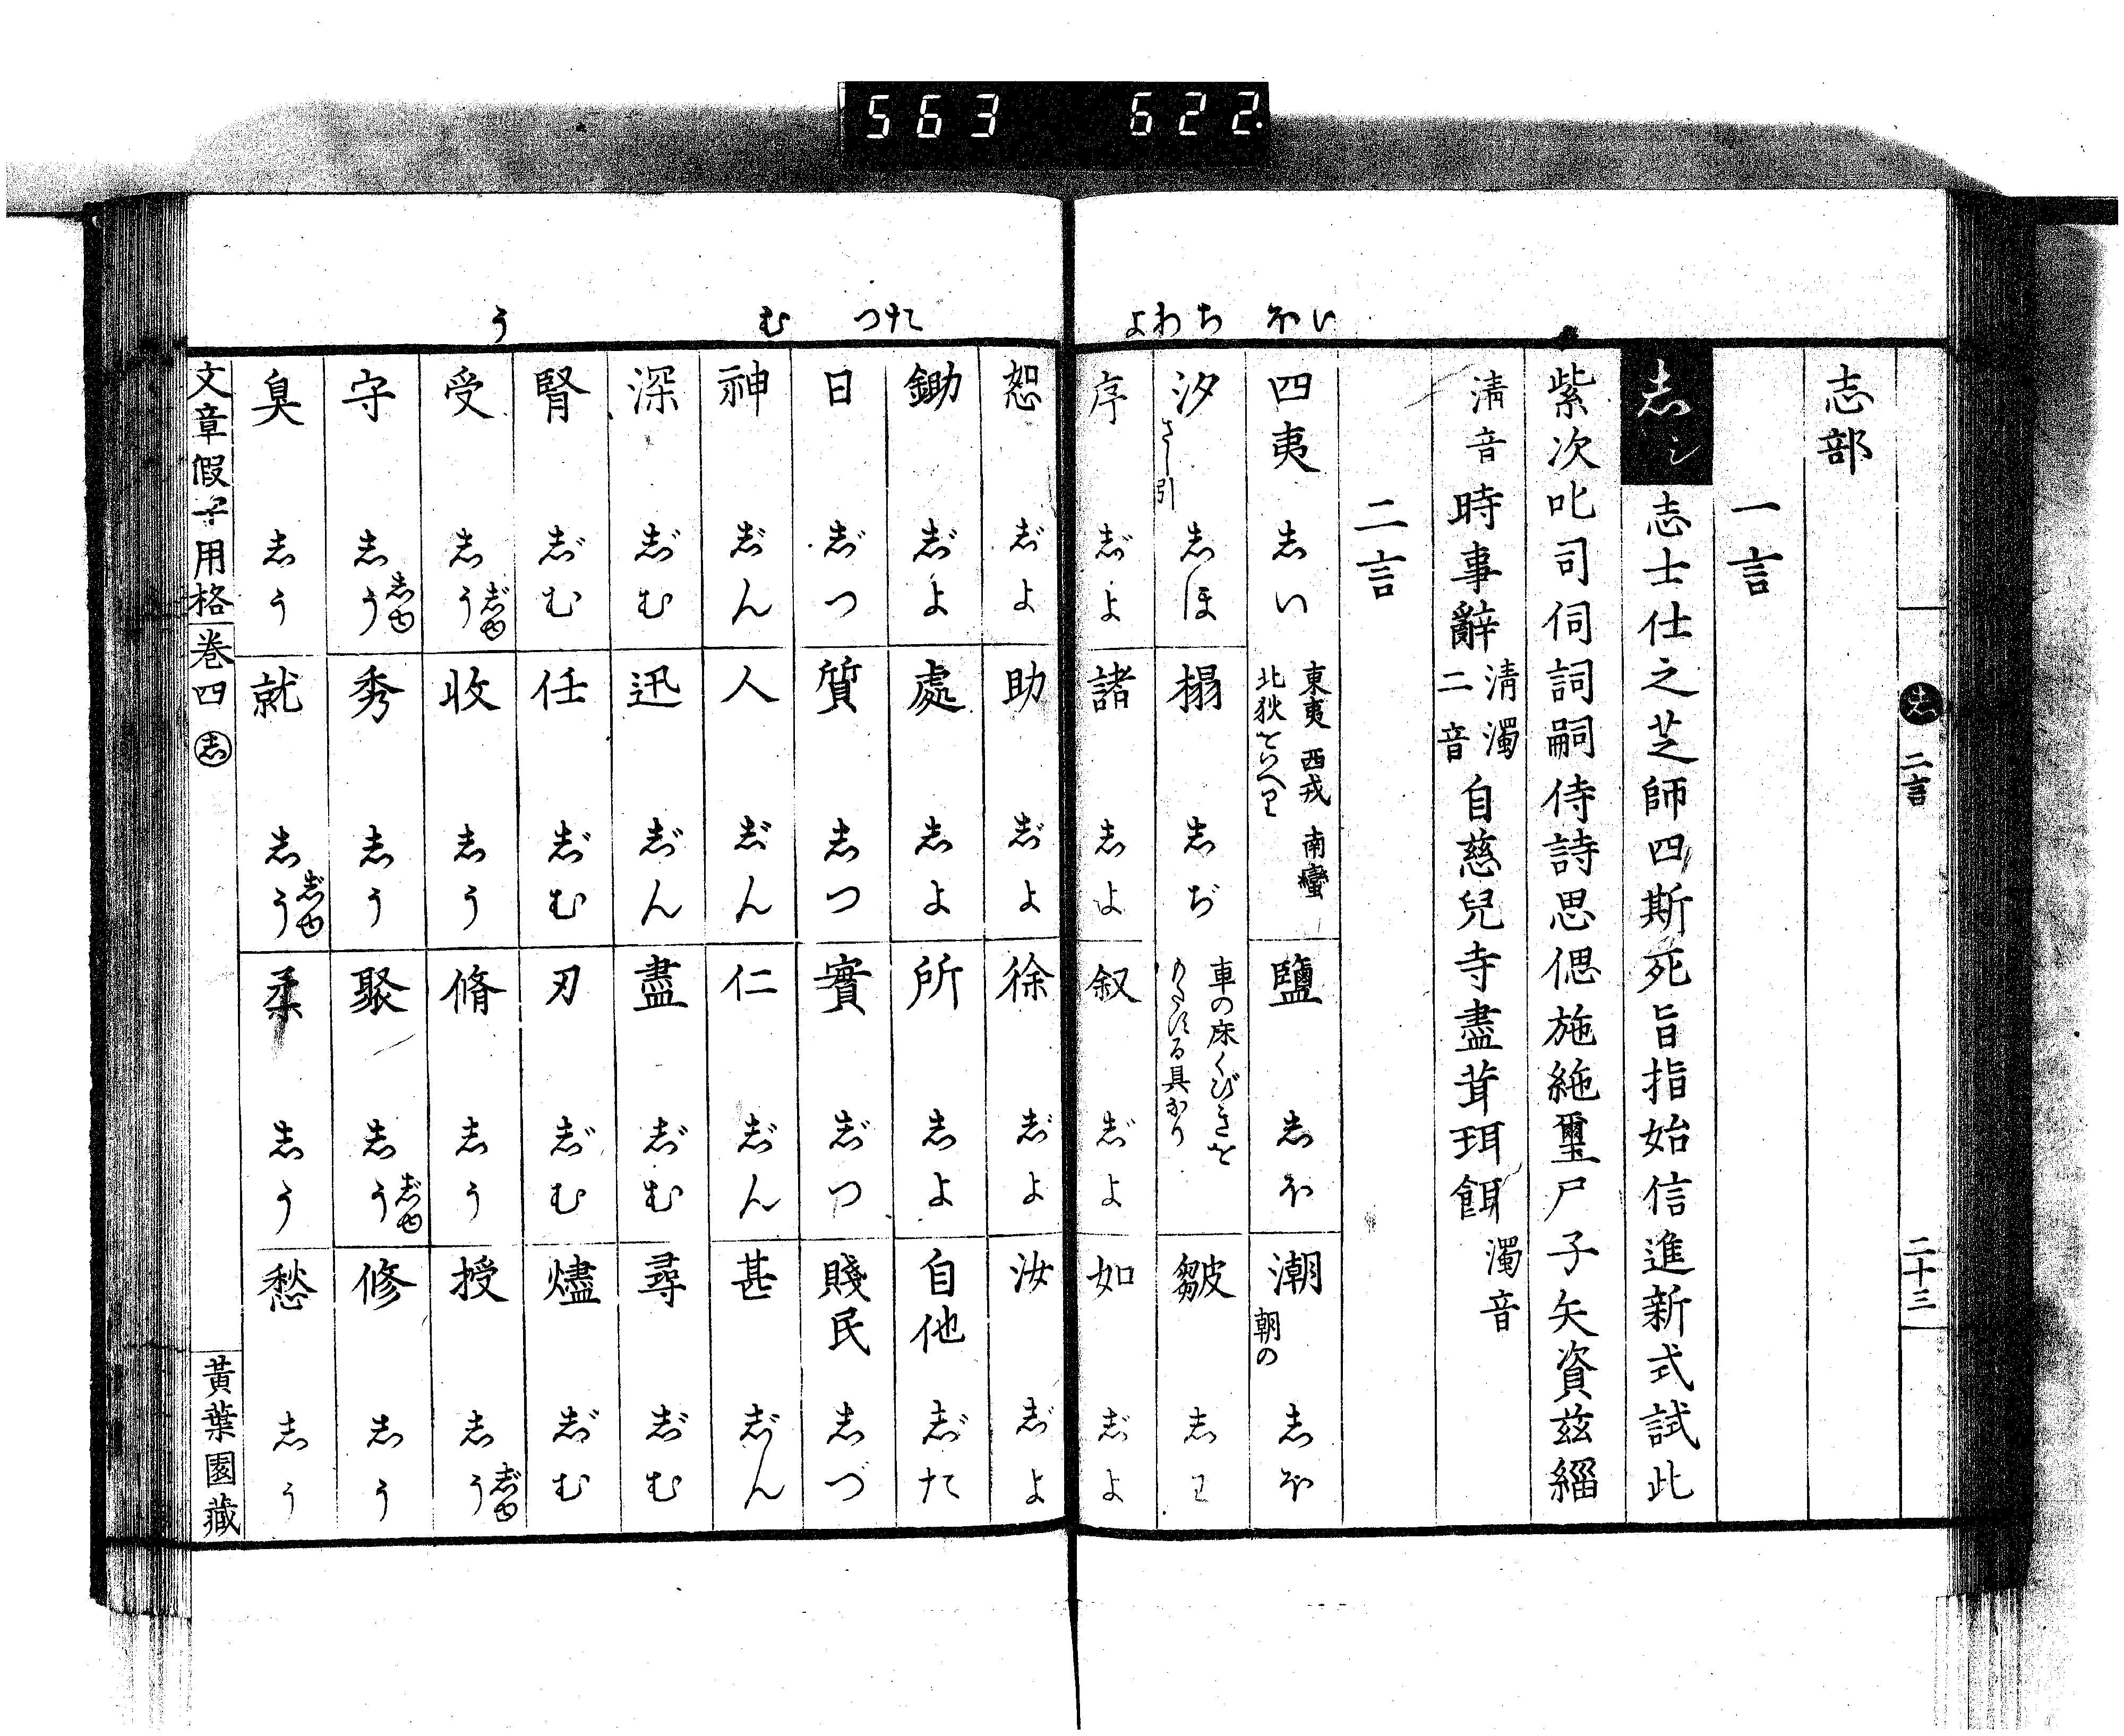 563 622
いほ ちわよ
志 二言 二十三
志部
一言
志シ 志士仕之芝師四斯死旨指始信進新式試此
紫次叱司伺詞嗣侍詩思偲施絁璽尸子矢資茲緇
清音 時事辭 清濁二音 自慈兒寺盡茸珥餌 濁音
二言
四夷 志い 東夷 西戎 南蠻 北狄をいへり 鹽 志ほ 潮 朝の 志ほ
汐 さし引 志ほ 搨 志ぢ 車の床くびきを 具なり 皺 志わ
序 志゛よ 諸 志よ 叙 志゛よ 如 志゛よ
たすつ む う
恕 志゛よ 助 志゛よ 徐 志゛よ 汝 志゛よ
鋤 志゛よ 處 志よ 所 志よ 自他 志゛た
日 志゛つ 質 志つ 實 志゛つ 賤民 志づ
神 志゛ん 人 志゛ん 仁 志゛ん 甚 志゛ん
深 志゛む 迅 志゛ん 盡 志゛む 尋 志゛む
腎 志゛む 任 志゛む 刃 志゛む 燼 志゛む
受 志う 志゛ゆ 收 志う 脩 志う 授 志う 志゛ゆ
守 志う 志ゆ 秀 志う 聚 志う 志゛ゆ 修 志う
臭 志う 就 志う 志゛ゆ 柔 志う 愁 志う
文章假字用格 巻四 志 黃葉園藏